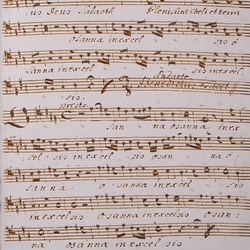 us Deus Sabaoth Pleni sunt coeli et terra
osanna in excel sis o
sanna in excel
sis Andante Benedictus
presto
san na osanna in ex
cel sis in excel sis osan na o
sanna o sanna in
in excelsis osanna in excelsis osan
na osanna in excel sis